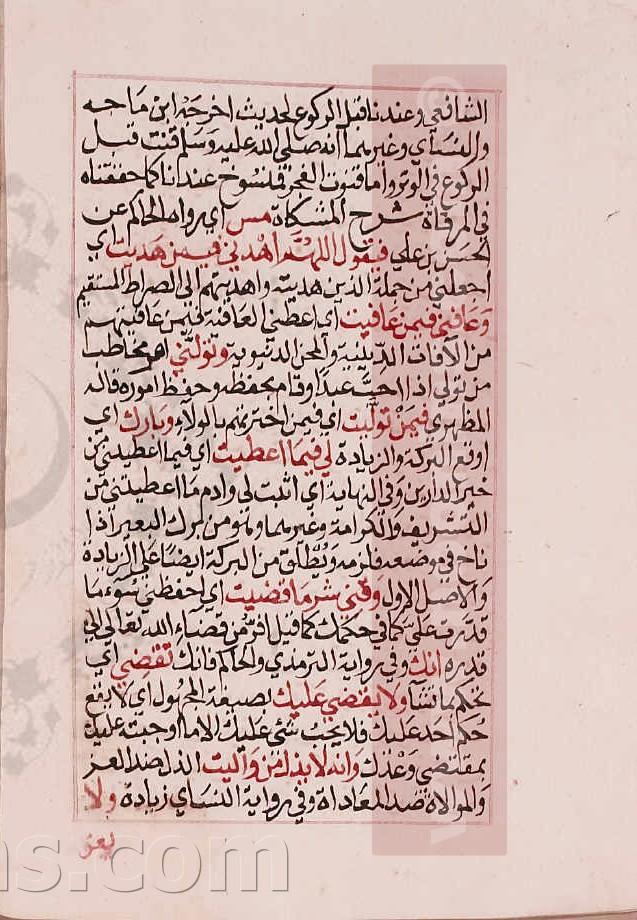 الشافعي وعندنا قبل الركوع لحديث اخرجه ابن ماجه
والنسآي وغيرهما أنه صلى الله عليه وسلم قنت قبل
الركوع في الوتر واما قنوت الفجر فمنسوخ عندنا كما حققناه
في المرقاة شرح المشكاة مس اي رواه الحاكم عن
الحسن بن علي فيقول اللهم اهدني فيمن هديت اي
اجعلني من جملة الذين هديتهم واهديتهم الى الصراط المستقيم
وعافني فيمن عافيت اي اعطني العافية فيمن عافيتهم
من الآفات الدينية والمحن الدنيوية وتولني امر مخاطب
من تولى اذا احب عبدا وقام بحفظه وحفظ اموره قاله
المظهري فيمن توليت اي فيمن اخترتهم بالولاء وبارك اي
اوقع البركة والزيادة لي فيما اعطيت اي فيما اعطيتني من
خير الدارين وفي النهاية اي اثبت لي وادم ما اعطيتني من
التشريف والكرامة وغيرهما وهو من برك البعير اذا
ناخ في موضعه فلزمه ويطلق من البركة ايضا على الزيادة
والاصل الاول وقني شر ما قضيت اي احفظني سوء ما
قدرت علي كما في حكمك كما قيل افر من قضاء الله تعالى الى
قدره انك وفي رواية الترمذي والحاكم فانك تقضي اي
تحكم ما تشآ ولا يقضى عليك بصيغة المجهول اي لا يقع
حكم احد عليك فلا يجب شئ عليك الا ما اوجبته عليك
بمقتضى وعدك وانه لا يذل من واليت الذل ضد العز
والموالاة ضد المعاداة وفي رواية النسآي زيادة ولا
يعز
ns.com